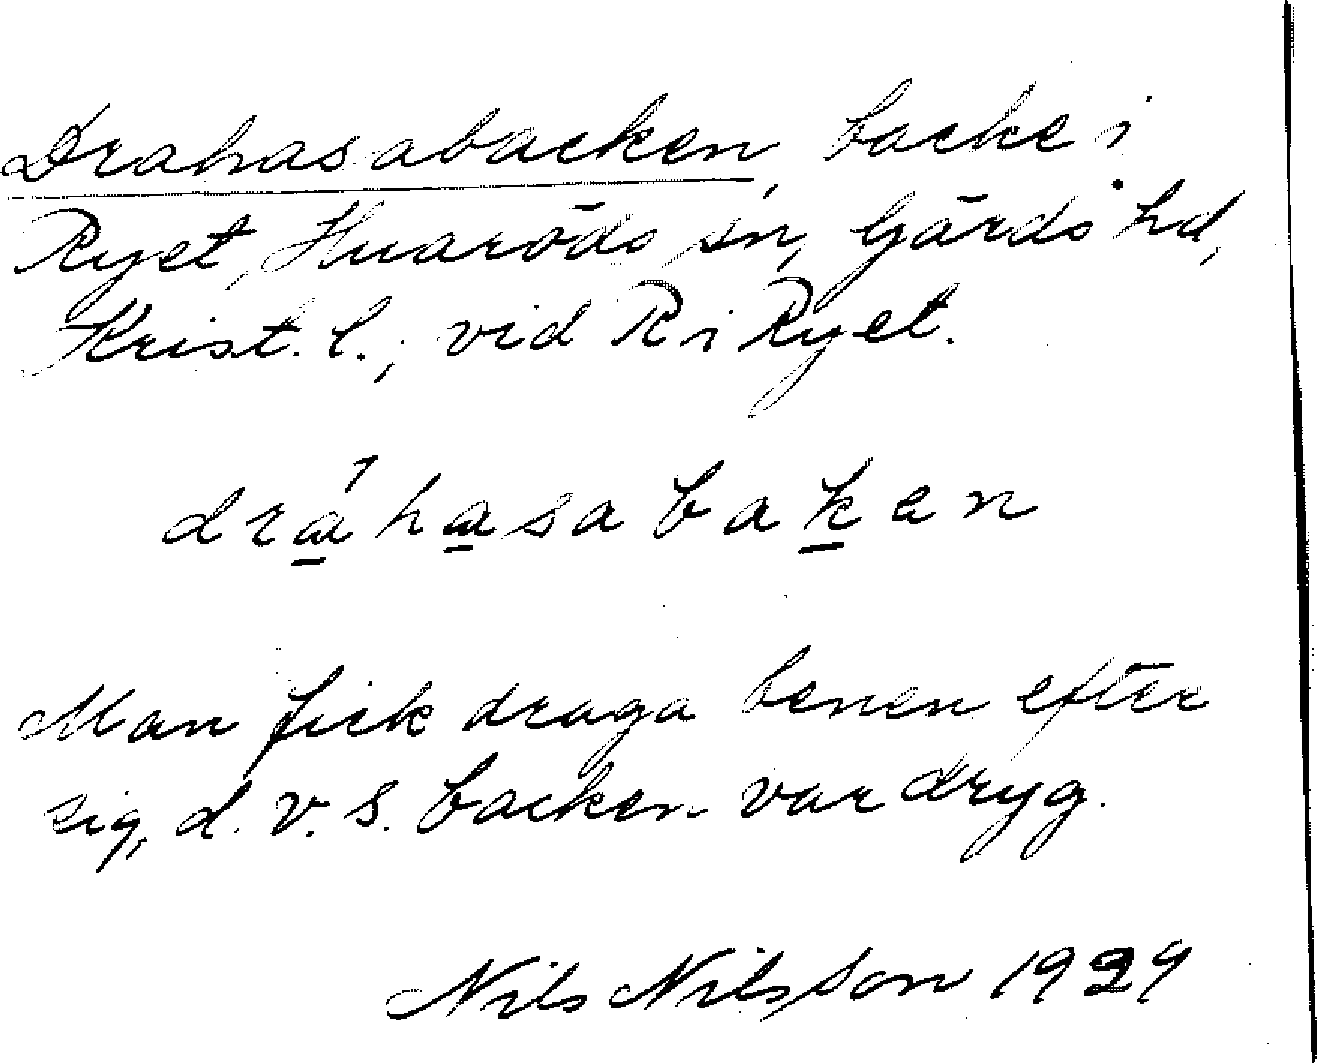 Drahasabacken, backe i
Ryet, Huaröds sn, Gärds hd,
Krist. l., vid R i Ryet.
dráhasabaken
Man fick draga benen efter
sig, d. v. s. backen var dryg.
Nils Nilsson 1929